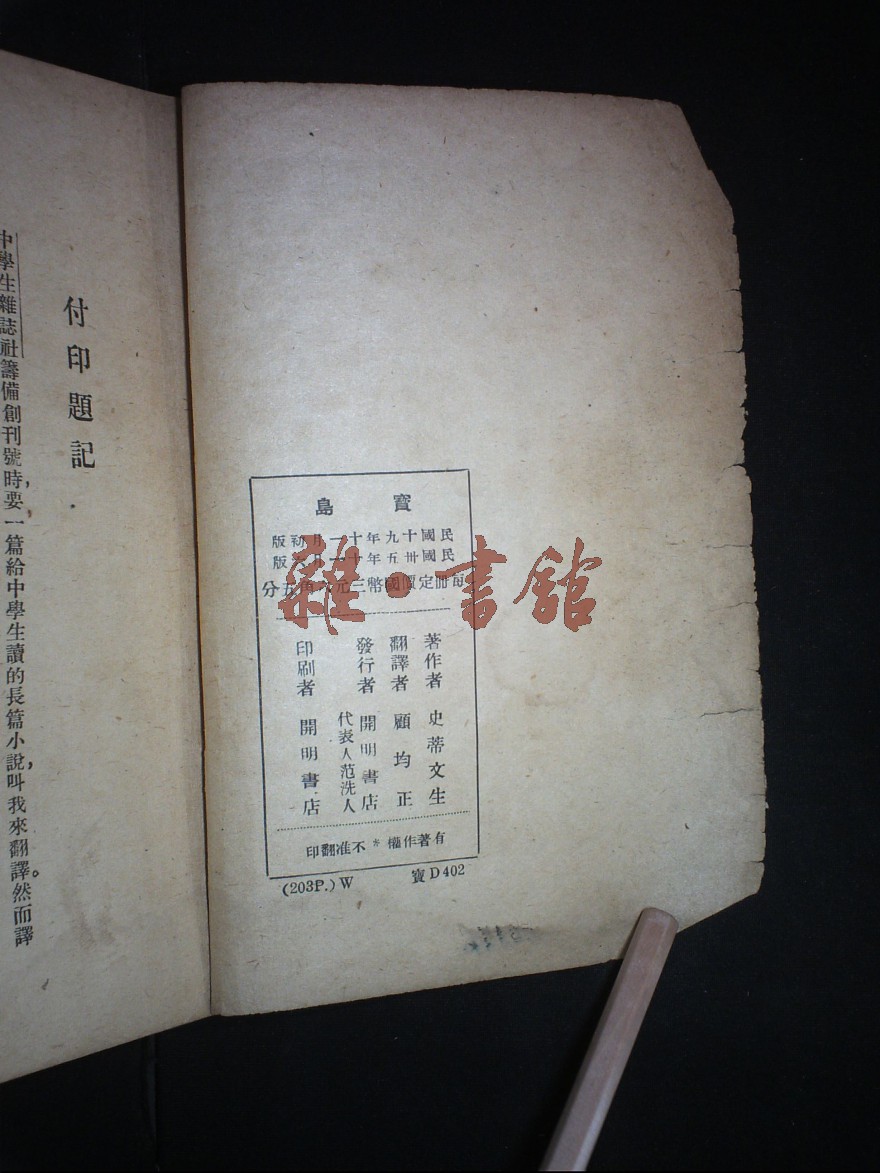 付印題記
中學生雜誌社籌備創刊號時，要一篇給中學生讀的長篇小說，叫我來翻譯。然而譯
寶島
民國十九年十一月初版
民國卅五年十一月版
每冊定價國幣三元角五分
著作者 史蒂文生
翻譯者 顧均正
發行者 開明書店
代表人范洗人
印刷者 開明書店
有著作權＊不准翻印
(203P.) W 寶 D 402
雜·書館